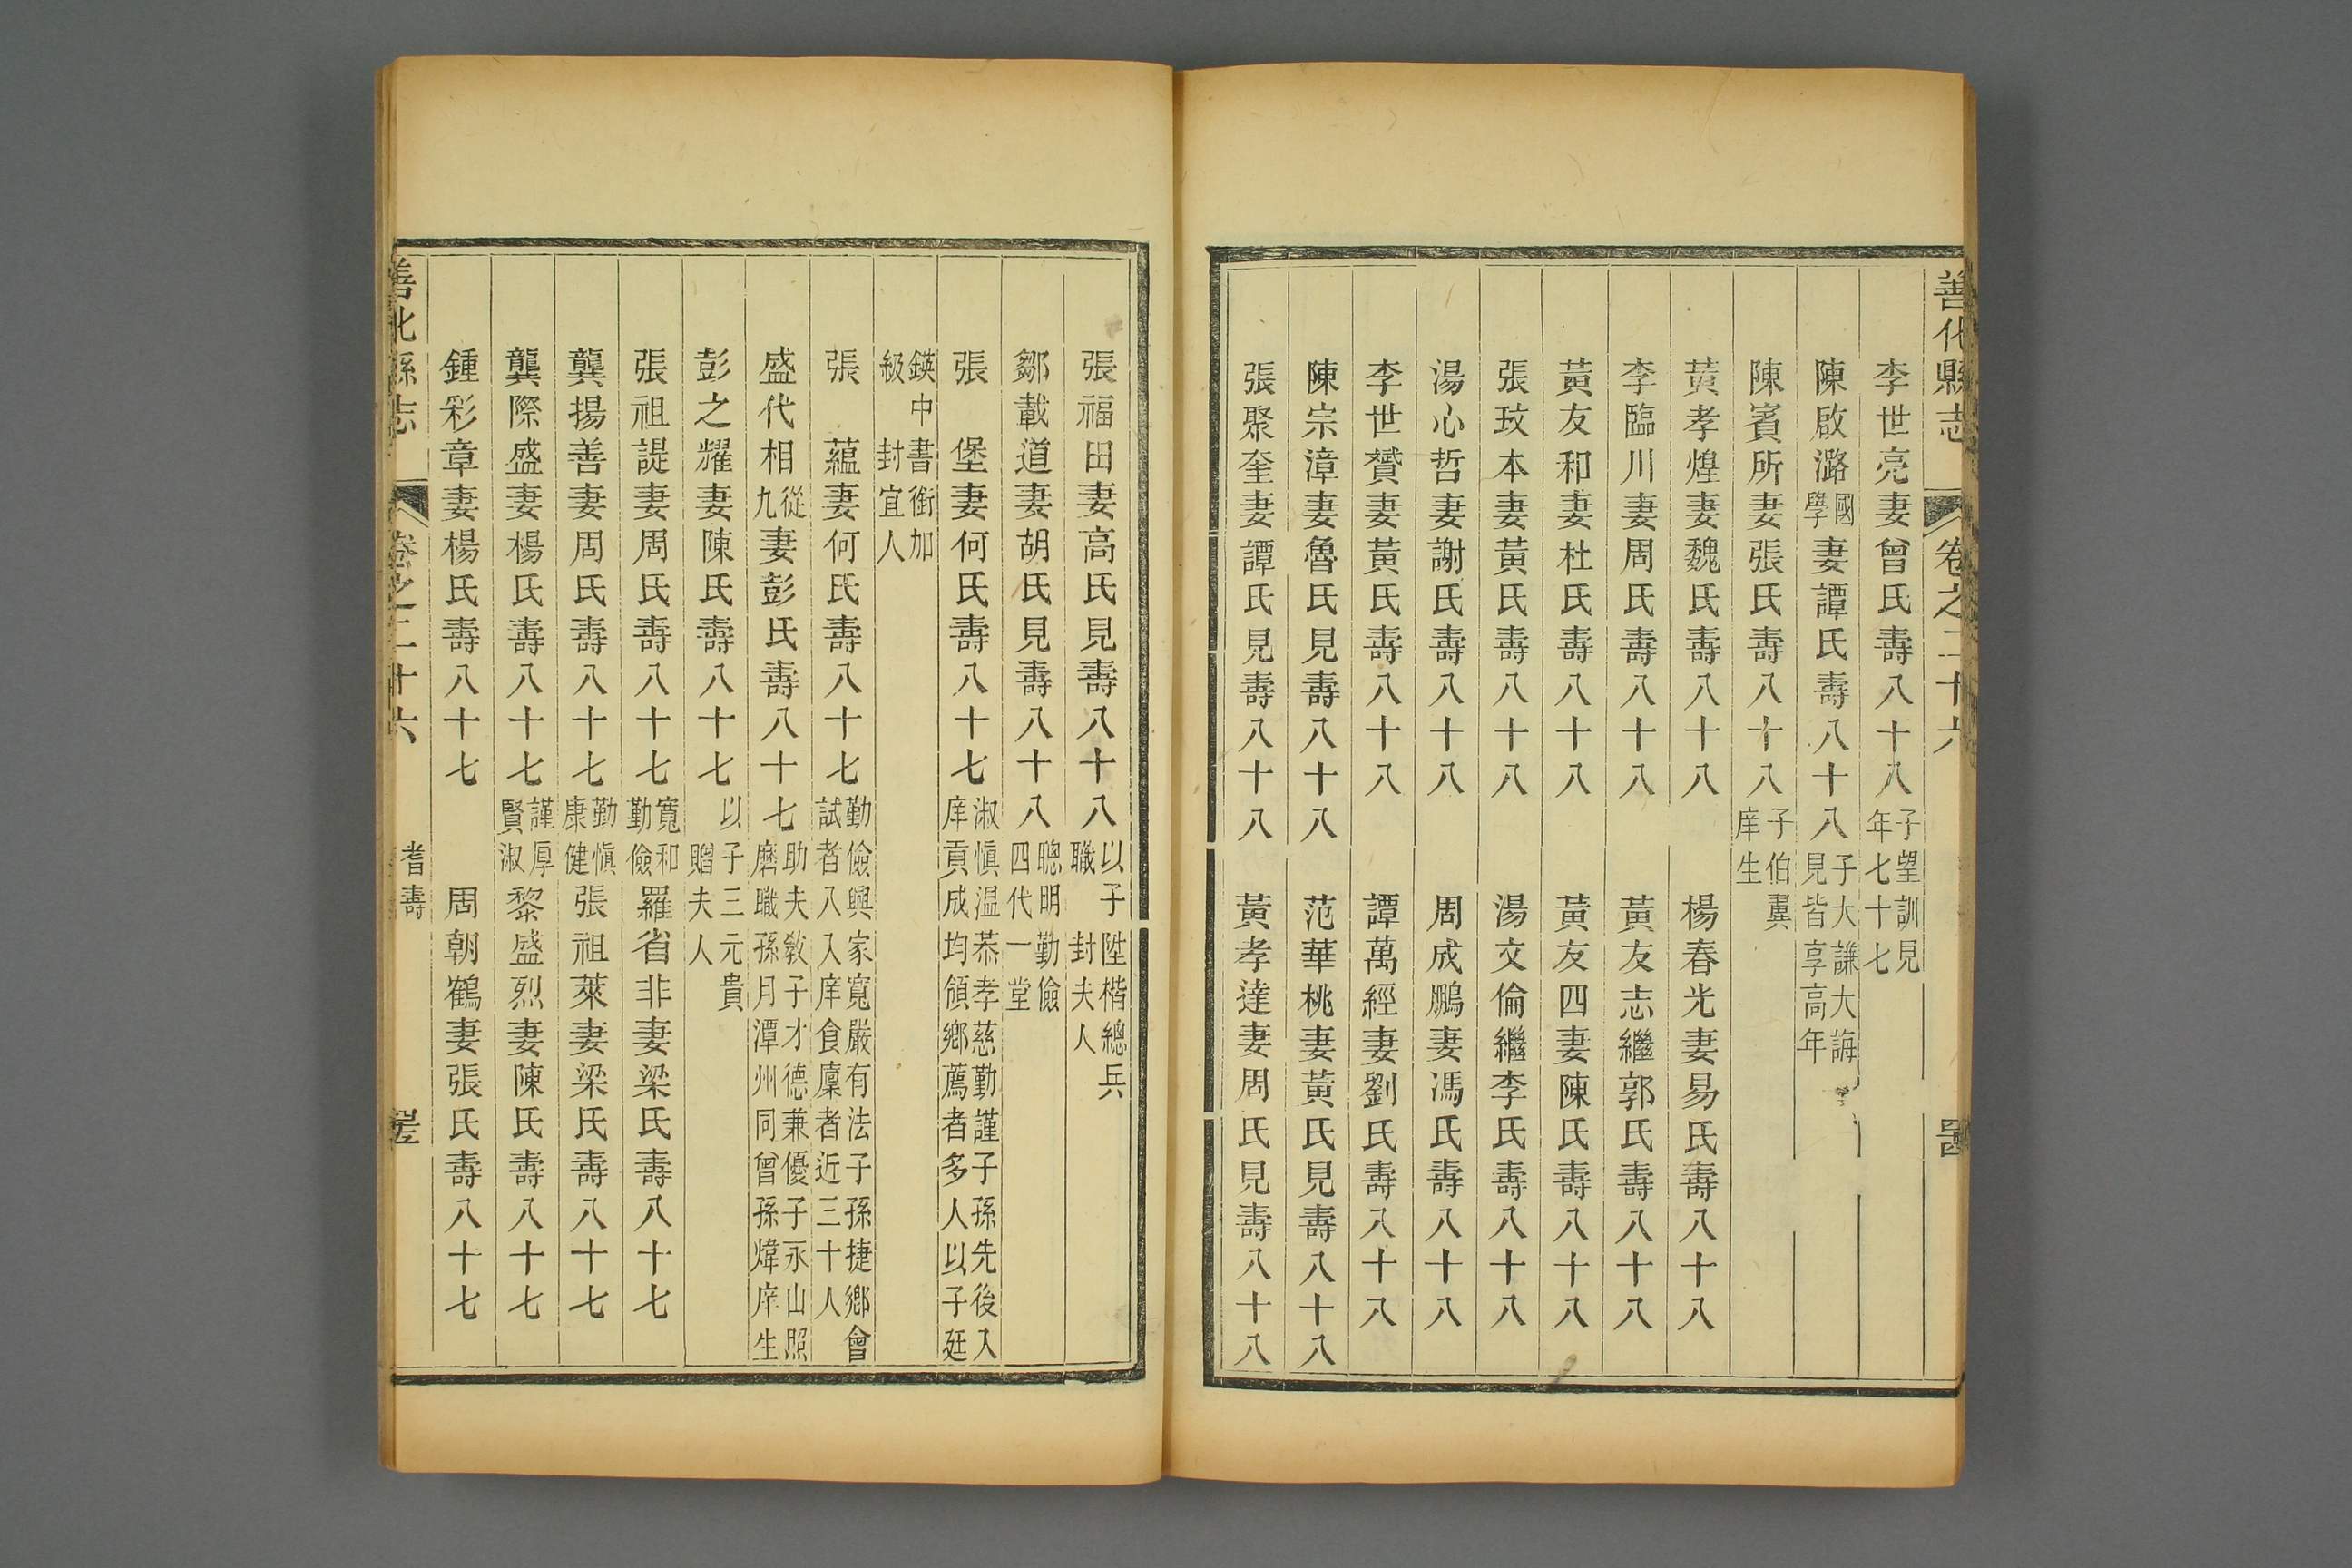 善化縣志 卷之二十六
李世亮妻曾氏壽八十八子望訓見年七十七
陳啟潞國學妻譚氏壽八十八子大謙大誨見皆享高年
陳賓所妻張氏壽八十八子伯翼庠生
黃孝煌妻魏氏壽八十八 楊春光妻易氏壽八十八
李臨川妻周氏壽八十八 黃友志繼郭氏壽八十八
黃友和妻杜氏壽八十八 黃友四妻陳氏壽八十八
張玟本妻黃氏壽八十八 湯文倫繼李氏壽八十八
湯心哲妻謝氏壽八十八 周成鵬妻馮氏壽八十八
李世贇妻黃氏壽八十八 譚萬經妻劉氏壽八十八
陳宗漳妻魯氏見壽八十八 范華桃妻黃氏見壽八十八
張聚奎妻譚氏見壽八十八 黃孝達妻周氏見壽八十八
張福田妻高氏見壽八十八以子陞楷總兵職封夫人
鄒載道妻胡氏見壽八十八聰明勤儉四代一堂
張堡妻何氏壽八十七淑慎温恭孝慈勤謹子孫先後入庠貢成均領鄉薦者多人以子廷
鍈中書銜加級封宜人
張蘊妻何氏壽八十七勤儉興家寬嚴有法子孫捷鄉會試者八入庠食廩者近三十人
盛代相從九妻彭氏壽八十七助夫敎子才德兼優子永山照磨職孫月潭州同曾孫煒庠生
彭之耀妻陳氏壽八十七以子三元貴贈夫人
張祖諟妻周氏壽八十七寬和勤儉 羅省非妻梁氏壽八十七
龔揚善妻周氏壽八十七勤慎康健 張祖萊妻梁氏壽八十七
龔際盛妻楊氏壽八十七謹厚賢淑 黎盛烈妻陳氏壽八十七
鍾彩章妻楊氏壽八十七 周朝鶴妻張氏壽八十七
善化縣志 卷之二十六 耆壽